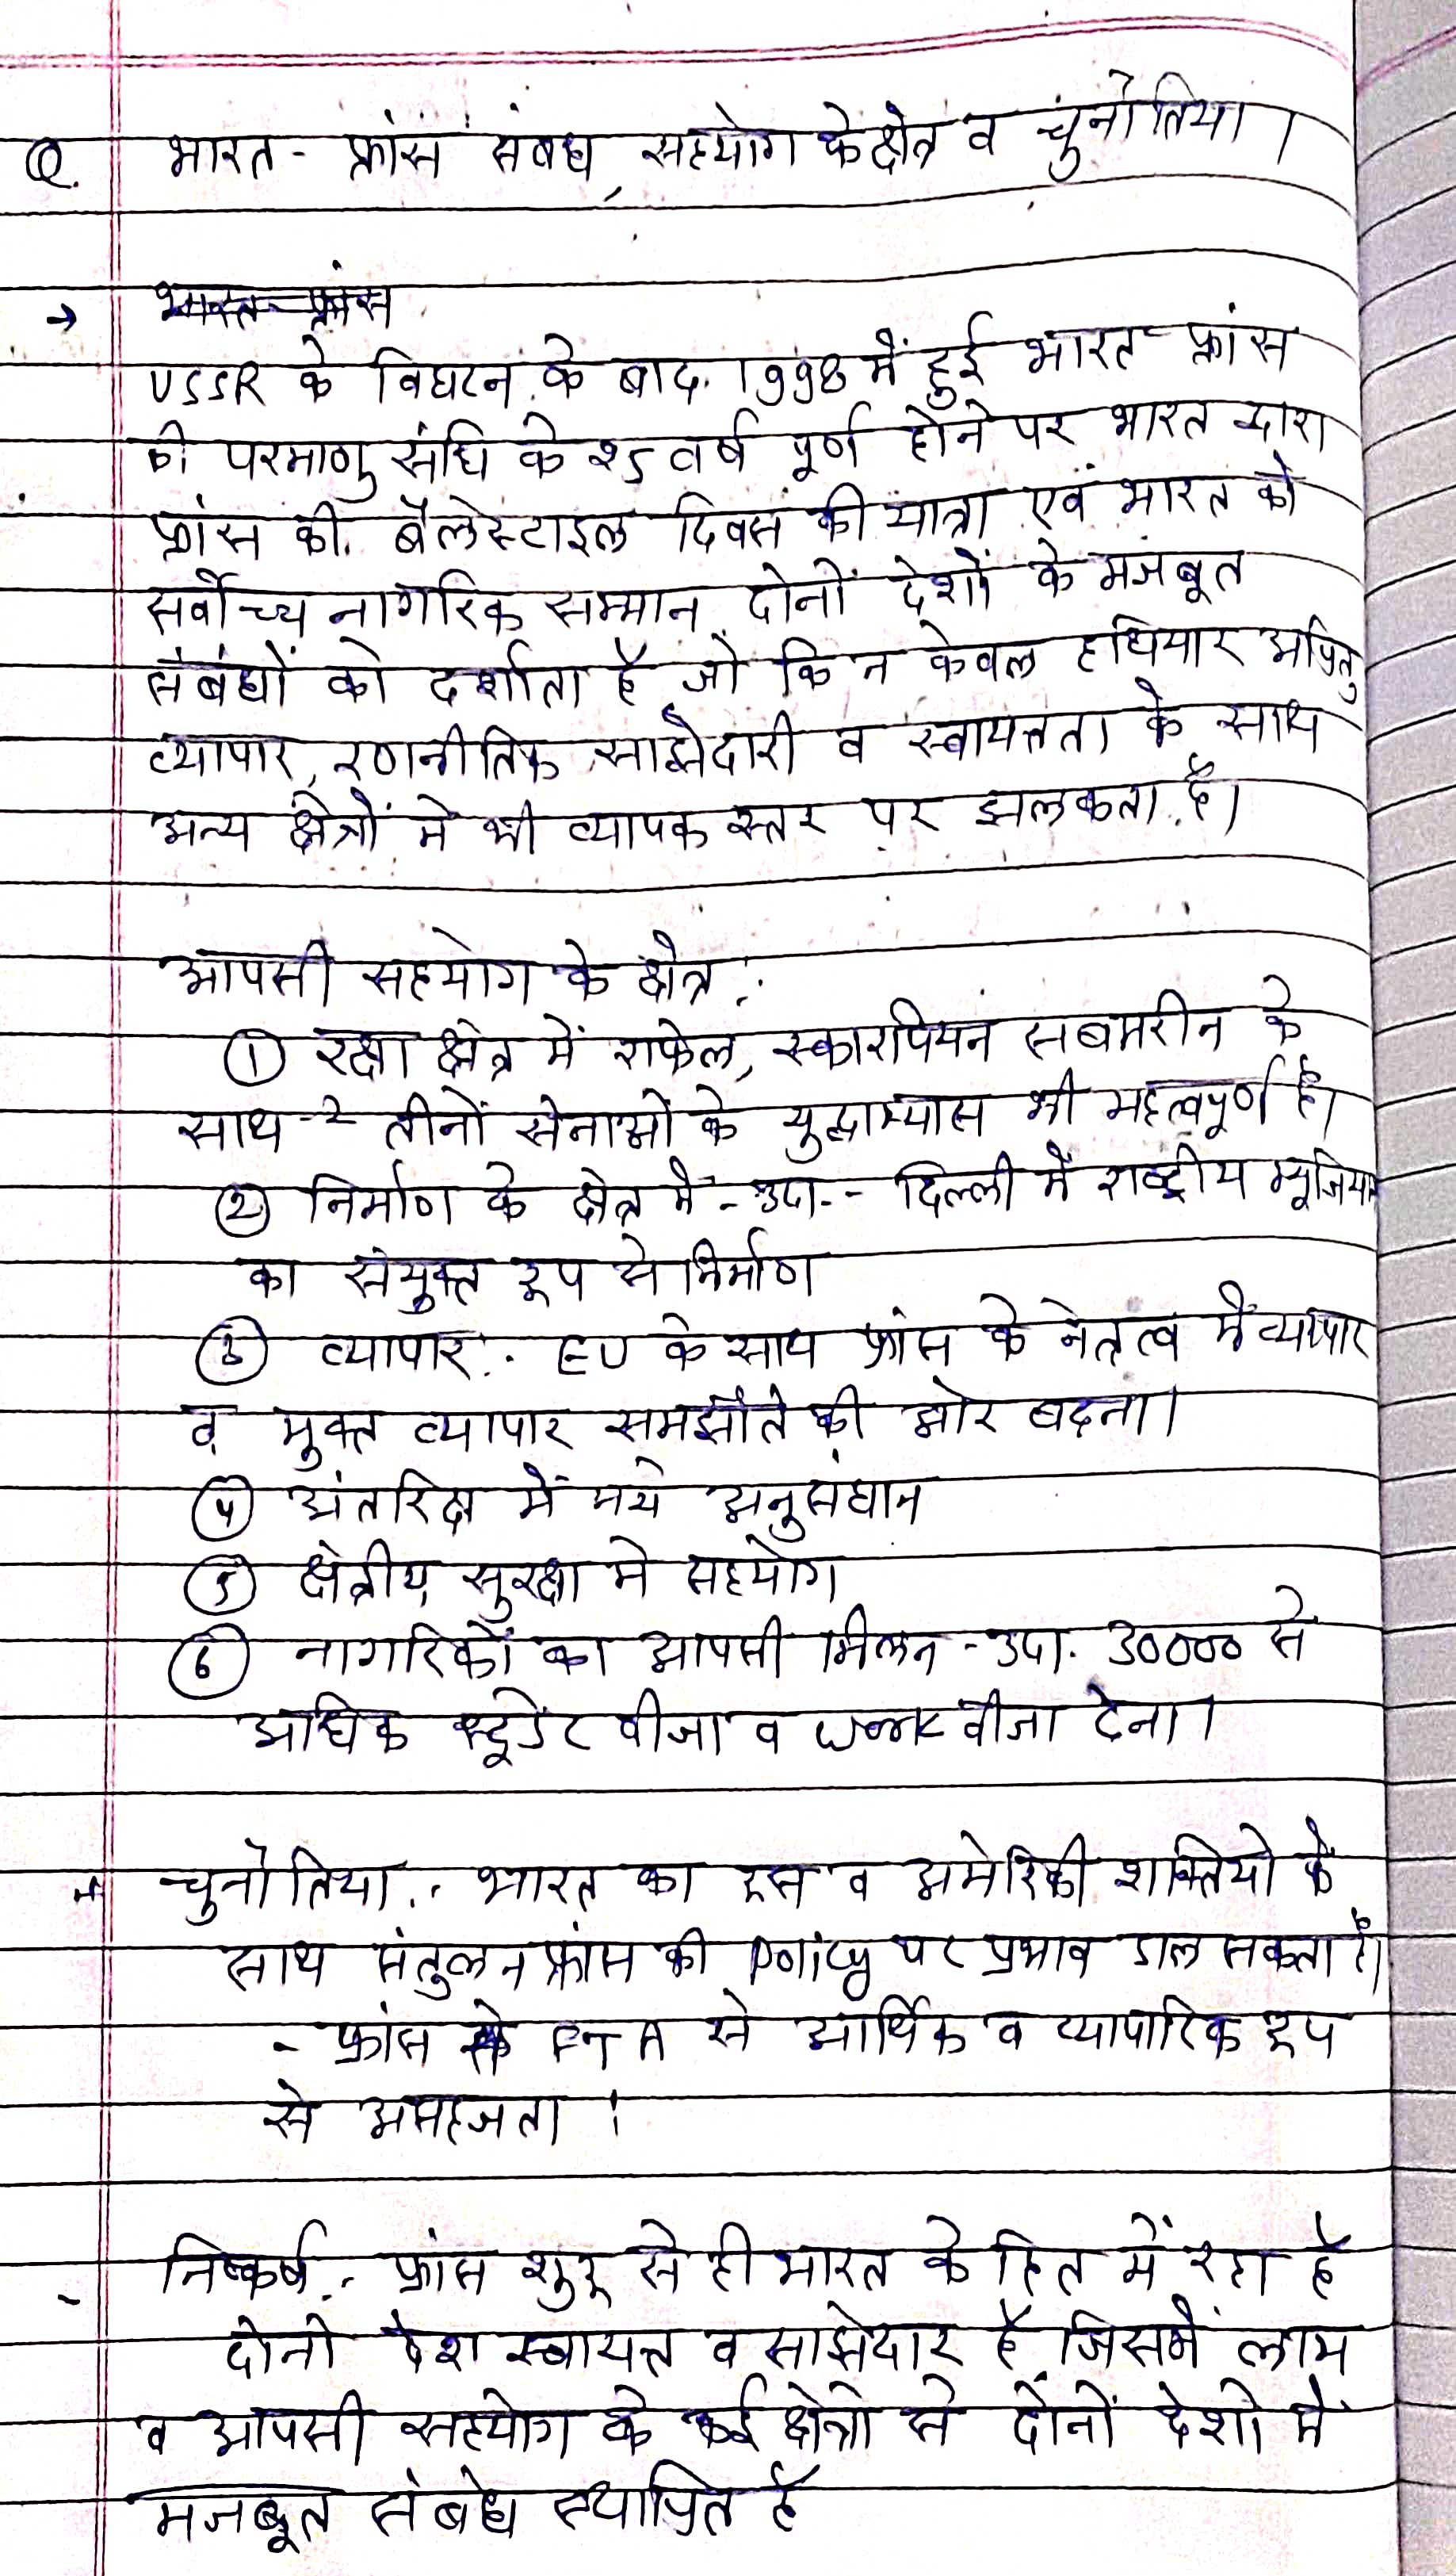 Q. भारत - फ्रांस संबंध, सहयोग के क्षेत्र व चुनौतिया।
→ भारत-फ्रांस
USSR के विघटन के बाद 1998 में हुई भारत फ्रांस
की परमाणु संधि के 25 वर्ष पूर्ण होने पर भारत द्वारा
फ्रांस की बैलेस्टाइल दिवस की यात्रा एवं भारत को
सर्वोच्च नागरिक सम्मान दोनों देशों के मजबूत
संबंधों को दर्शाता है जो कि न केवल हथियार अपितु
व्यापार, रणनीतिक साझेदारी व स्वायत्तता के साथ
अन्य क्षेत्रों मे भी व्यापक स्तर पर झलकता है।
आपसी सहयोग के क्षेत्र :
① रक्षा क्षेत्र में राफेल, स्कारपियन सबमरीन के
साथ-2 तीनों सेनाओं के युद्धाभ्यास भी महत्वपूर्ण है।
② निर्माण के क्षेत्र मे - उदा.- दिल्ली में राष्ट्रीय म्यूजियम
का संयुक्त रूप से निर्माण
③ व्यापार :- EU के साथ फ्रांस के नेतृत्व में व्यापार
व मुक्त व्यापार समझौते की ओर बढ़ना।
④ अंतरिक्ष में नये अनुसंधान
⑤ क्षेत्रीय सुरक्षा मे सहयोग
⑥ नागरिकों का आपसी मिलन - उदा. 30000 से
अधिक स्टूडेंट वीजा व work वीजा देना।
→ चुनौतिया :- भारत का रूस व अमेरिकी शक्तियो के
साथ संतुलन फ्रांस की policy पर प्रभाव डाल सकता है।
- फ्रांस के FTA से आर्थिक व व्यापारिक रूप
से असहजता।
- निष्कर्ष :- फ्रांस शुरू से ही भारत के हित में रहा है
दोनो देश स्वायत्त व साझेदार है जिसमें लाभ
व आपसी सहयोग के कई क्षेत्रो से दोनों देशो मे
मजबूत संबंध स्थापित है